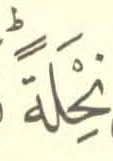 نِحْلَةًؕ